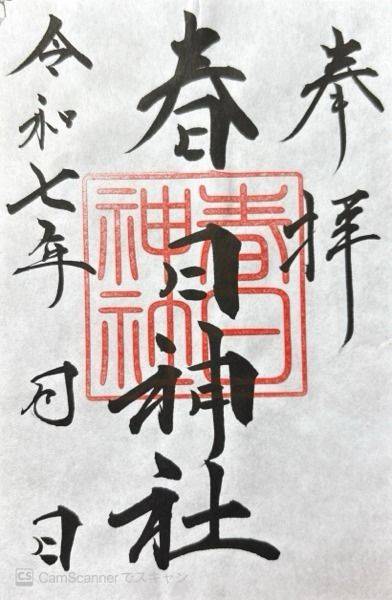 奉拝
春日神社
春日
神
令和七年 月 日
CS CamScanner でスキャン